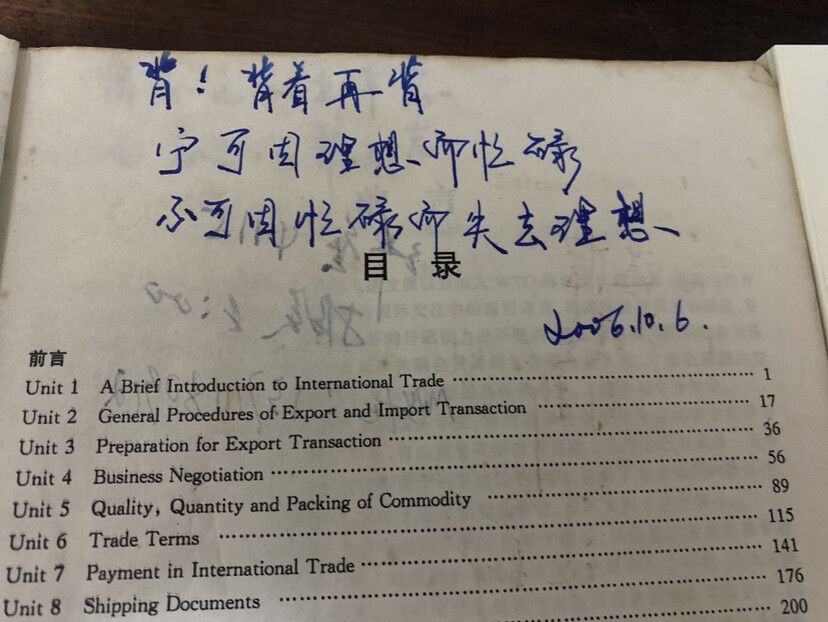 背！背着再背
宁可因理想而忙碌
不可因忙碌而失去理想
目 录
2006.10.6.
前言
Unit 1 A Brief Introduction to International Trade ⋯⋯⋯⋯⋯⋯⋯⋯⋯⋯ 1
Unit 2 General Procedures of Export and Import Transaction ⋯⋯⋯⋯⋯⋯ 17
Unit 3 Preparation for Export Transaction ⋯⋯⋯⋯⋯⋯⋯⋯⋯⋯ 36
Unit 4 Business Negotiation ⋯⋯⋯⋯⋯⋯⋯⋯⋯⋯ 56
Unit 5 Quality, Quantity and Packing of Commodity ⋯⋯⋯⋯⋯⋯ 89
Unit 6 Trade Terms ⋯⋯⋯⋯⋯⋯⋯⋯⋯⋯ 115
Unit 7 Payment in International Trade ⋯⋯⋯⋯⋯⋯⋯⋯⋯⋯ 141
Unit 8 Shipping Documents ⋯⋯⋯⋯⋯⋯⋯⋯⋯⋯ 176
200